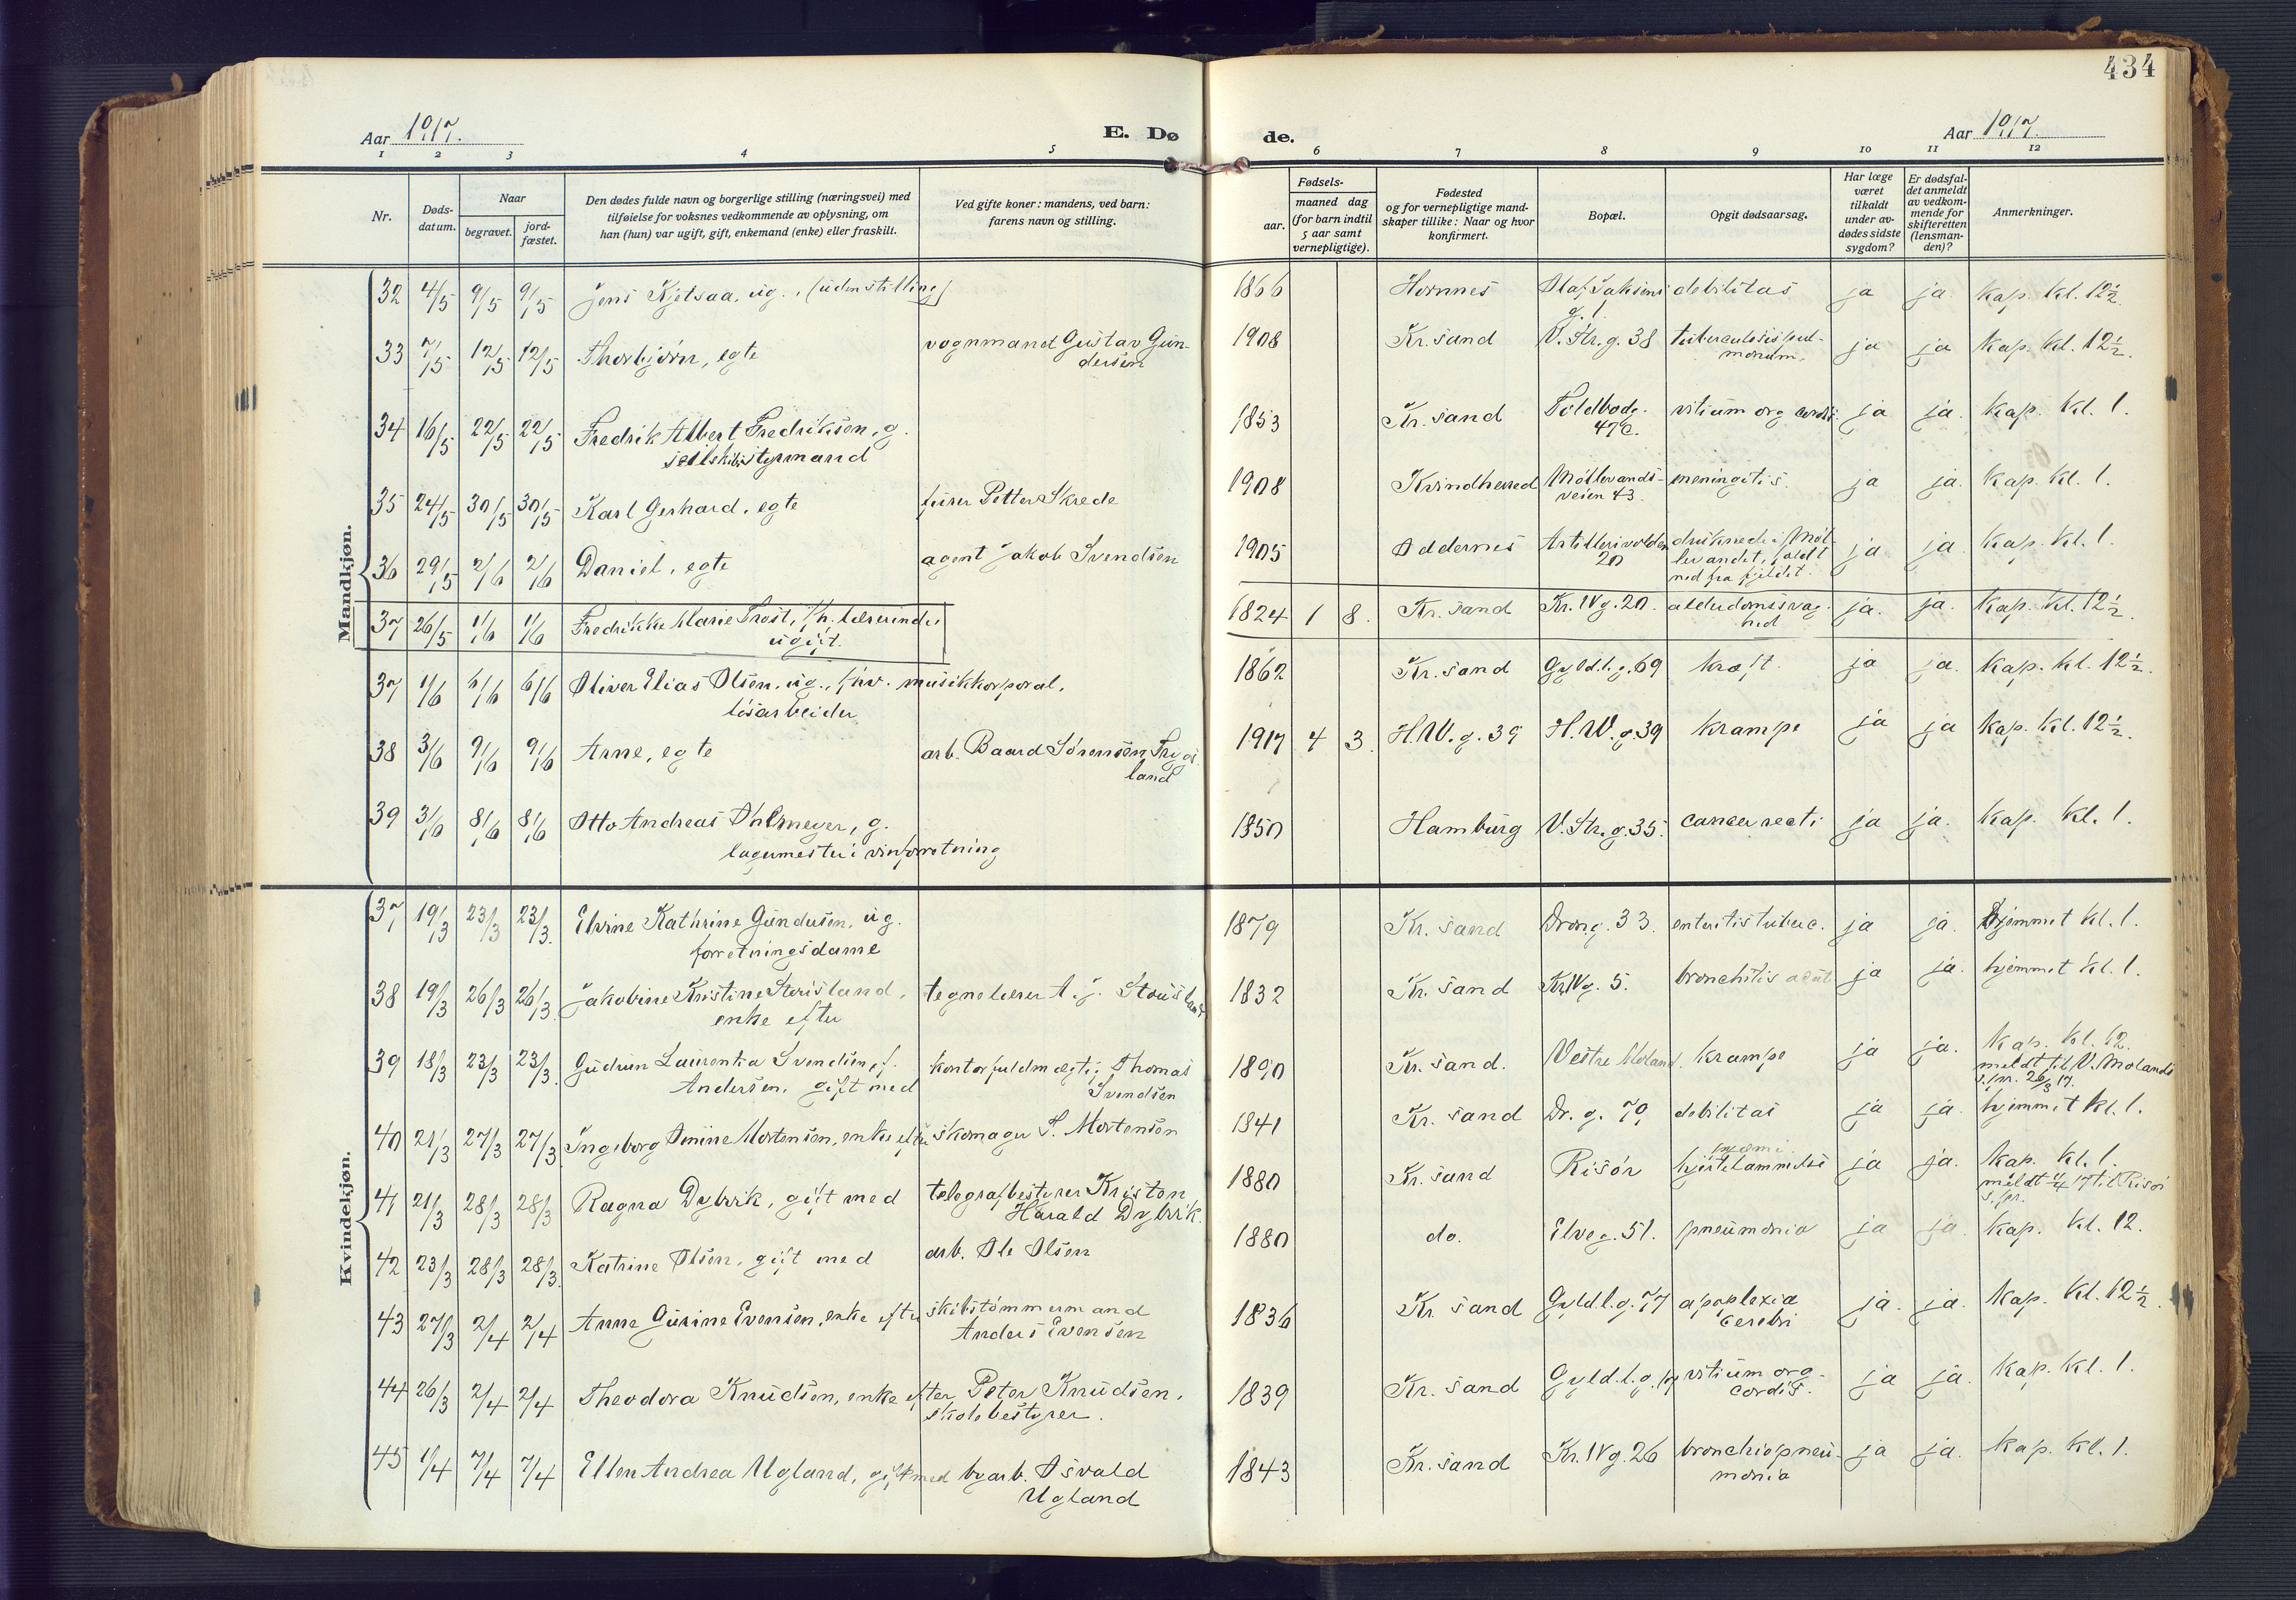 434
Aar 1917.
E. Dø
de.
Aar 1917.
1 2 3 4 5 6 7 8 9 10 11 12
Nr.
Døds-
datum.
Naar
begravet.
jord-
fæstet.
Den dødes fulde navn og borgerlige stilling (næringsvei) med
tilføielse for voksnes vedkommende av oplysning, om
han (hun) var ugift, gift, enkemand (enke) eller fraskilt.
Ved gifte koner: mandens, ved barn:
farens navn og stilling.
Fødsels-
aar.
maaned dag
(for barn indtil
5 aar samt
vernepligtige).
Fødested
og for vernepligtige mand-
skaper tillike: Naar og hvor
konfirmert.
Bopæl.
Opgit dødsaarsag.
Har læge
været
tilkaldt
under av-
dødes sidste
sygdom?
Er dødsfal-
det anmeldt
av vedkom-
mende for
skifteretten
(lensman-
den)?
Anmerkninger.
Mandkjøn.
32 4/5 9/5 9/5 Jens Kjetsaa, ug., (uden stilling) 1866 Hornnes Olaf debilitas ja ja Kap. Kl. 12½.
33 7/5 12/5 12/5 Thorbjørn, egte vognmand Gustav Gun- 1908 Kr.sand V. Str. g. 38 tuberculosis pul- ja ja Kap. Kl. 12½.
dersen monum.
34 16/5 22/5 22/5 Fredrik Albert Fredriksen, g. 1853 Kr. sand Toldbodg. vitium org cordis ja ja. Kap. Kl. 1.
styrmand 47c.
35 24/5 30/5 30/5 Karl Gerhard, egte furer Petter Skrede 1908 Kvindherred Møllevands- meningitis. ja ja. Kap. Kl. 1.
veien 43.
36 29/5 2/6 2/6 Daniel, egte agent Jakob Svendsen 1905 Oddernes Artillerivolden druknede i Møl- ja ja. Kap. Kl. 1.
20 levandet, faldt
ned fra fjeldet.
37 26/5 1/6 1/6 Fredrikke Marie Frost, fh. lærerinde, 1824 1 8. Kr. sand Kr. IVg. 20. alderdomssvag- ja. ja. Kap. Kl. 12½.
ugift. hed
37 1/6 6/6 6/6 Oliver Elias Olsen, ug., fhv. musikkorporal, 1862 Kr. sand Gyld.l.g. 69 kræft. ja ja. Kap. Kl. 12½.
løsarbeider
38 3/6 9/6 9/6 Arne, egte arb. Baard Sørensen 1917 4 3. H.W.g. 39 H.W.g. 39 Krampe ja ja Kap. Kl. 12½.
land
39 3/6 8/6 8/6 Otto Andreas Ohlmeyer, g. 1850 Hamburg V. Str. g. 35. cancer recti ja ja. Kap. Kl. 1.
lagermester i vinforretning
Kvindekjøn.
37 19/3 23/3 23/3. Elvine Kathrine Gundersen, ug. 1879 Kr. sand Dron.g. 33. enteritis tuberc. ja ja. Hjemmet Kl. 1.
forretningsdame
38 19/3 26/3 26/3. Jakobine Kristine Stousland, tegnelærer A. J. Stousland 1832 Kr. sand Kr. IVg. 5. bronchitis acut ja ja. hjemmet Kl. 1.
enke efter
39 18/3 23/3 23/3. Gudrun Laurentia Svendsen, f. kontorfuldmægtig Thomas 1890 Kr. sand. Vestre Moland. krampe ja ja. Kap. Kl. 12.
Andersen, gift med Svendsen meldt til V. Molands
s.pr. 26/3 17.
40 21/3 27/3 27/3 Ingeborg Omine Mortensen, enke efter skomager S. Mortensen 1841 Kr. sand Dr. g. 70 debilitas ja ja. hjemmet Kl. 1.
41 21/3 28/3 28/3 Ragna Dybvik, gift med telegrafbestyrer Kristen 1880 Kr. sand Risør hjertelammelse ja ja. Kap. Kl. 1.
Harald Dybvik. meldt 17 til Risør
s.pr.
42 23/3 28/3 28/3. Katrine Olsen, gift med arb. Ole Olsen 1880 do. Elveg. 51. pneumonia ja ja Kap. Kl. 12.
43 27/3 2/4 2/4 Anne Gurine Evensen, enke efter skibstømmermand 1836 Kr. sand Gyld.l.g. 77 apoplexia ja. ja. Kap. Kl. 12½.
Anders Evensen cerebri
44 26/3 2/4 2/4 Theodora Knudsen, enke efter Peter Knudsen, 1839 Kr. sand Gyld.l.g. vitium org. ja ja. Kap. Kl. 1.
skolebestyrer. cordis.
45 1/4 7/4 7/4 Ellen Andrea Ugland, gift med byarb. Osvald 1843 Kr. sand Kr. IVg. 26 bronchiopneu- ja ja. Kap. Kl. 1.
Ugland monia